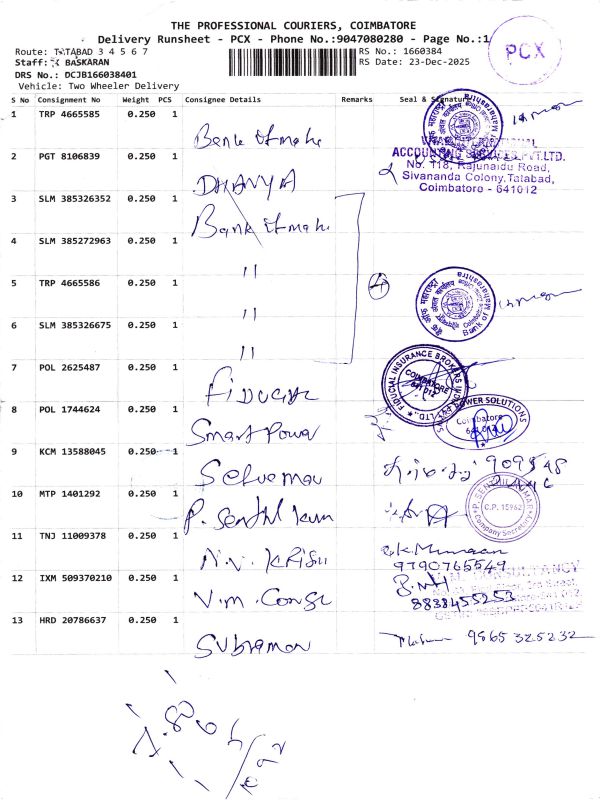 THE PROFESSIONAL COURIERS, COIMBATORE
Delivery Runsheet - PCX - Phone No.:9047080280 - Page No.:1
Route: TATABAD 3 4 5 6 7
RS No.: 1660384
Staff: K BASKARAN
RS Date: 23-Dec-2025
DRS No.: DCJB166038401
Vehicle: Two Wheeler Delivery
PCX
S No Consignment No Weight PCS Consignee Details Remarks Seal & Signature
1 TRP 4665585 0.250 1 Bank of mah
2 PGT 8106839 0.250 1 DHANYA
ACCOUNTING SERVICES PVT.LTD.
No. 118, Rajunaidu Road,
Sivananda Colony, Tatabad,
Coimbatore - 641012
3 SLM 385326352 0.250 1 Bank of mah
4 SLM 385272963 0.250 1 "
5 TRP 4665586 0.250 1 "
4
Bank of Maharashtra
6 SLM 385326675 0.250 1 "
7 POL 2625487 0.250 1 Fiducial
FIDUCIAL INSURANCE BROKERS INDIA PVT. LTD.
COIMBATORE
641 012
8 POL 1744624 0.250 1 Smart Power
POWER SOLUTIONS
Coimbatore
641 012
9 KCM 13588045 0.250 1 Selvamau
10 MTP 1401292 0.250 1 P. Senthil kum
P. SENTHIL KUMAR
C.P. 15962
Company Secretary
11 TNJ 11009378 0.250 1 N.V. KRISH
9790765549
12 IXM 509370210 0.250 1 V.M. Consl
V.M. CONSULTANCY
8838455253
13 HRD 20786637 0.250 1 Subramon
9865325232